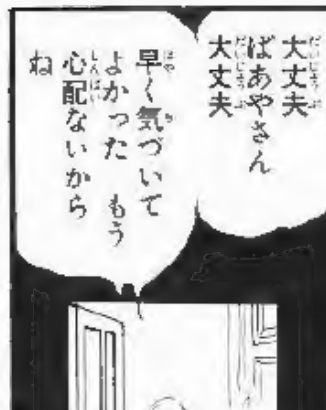 大丈夫
ばあやさん
大丈夫
早く気づいて
よかった　もう
心配ないから
ね